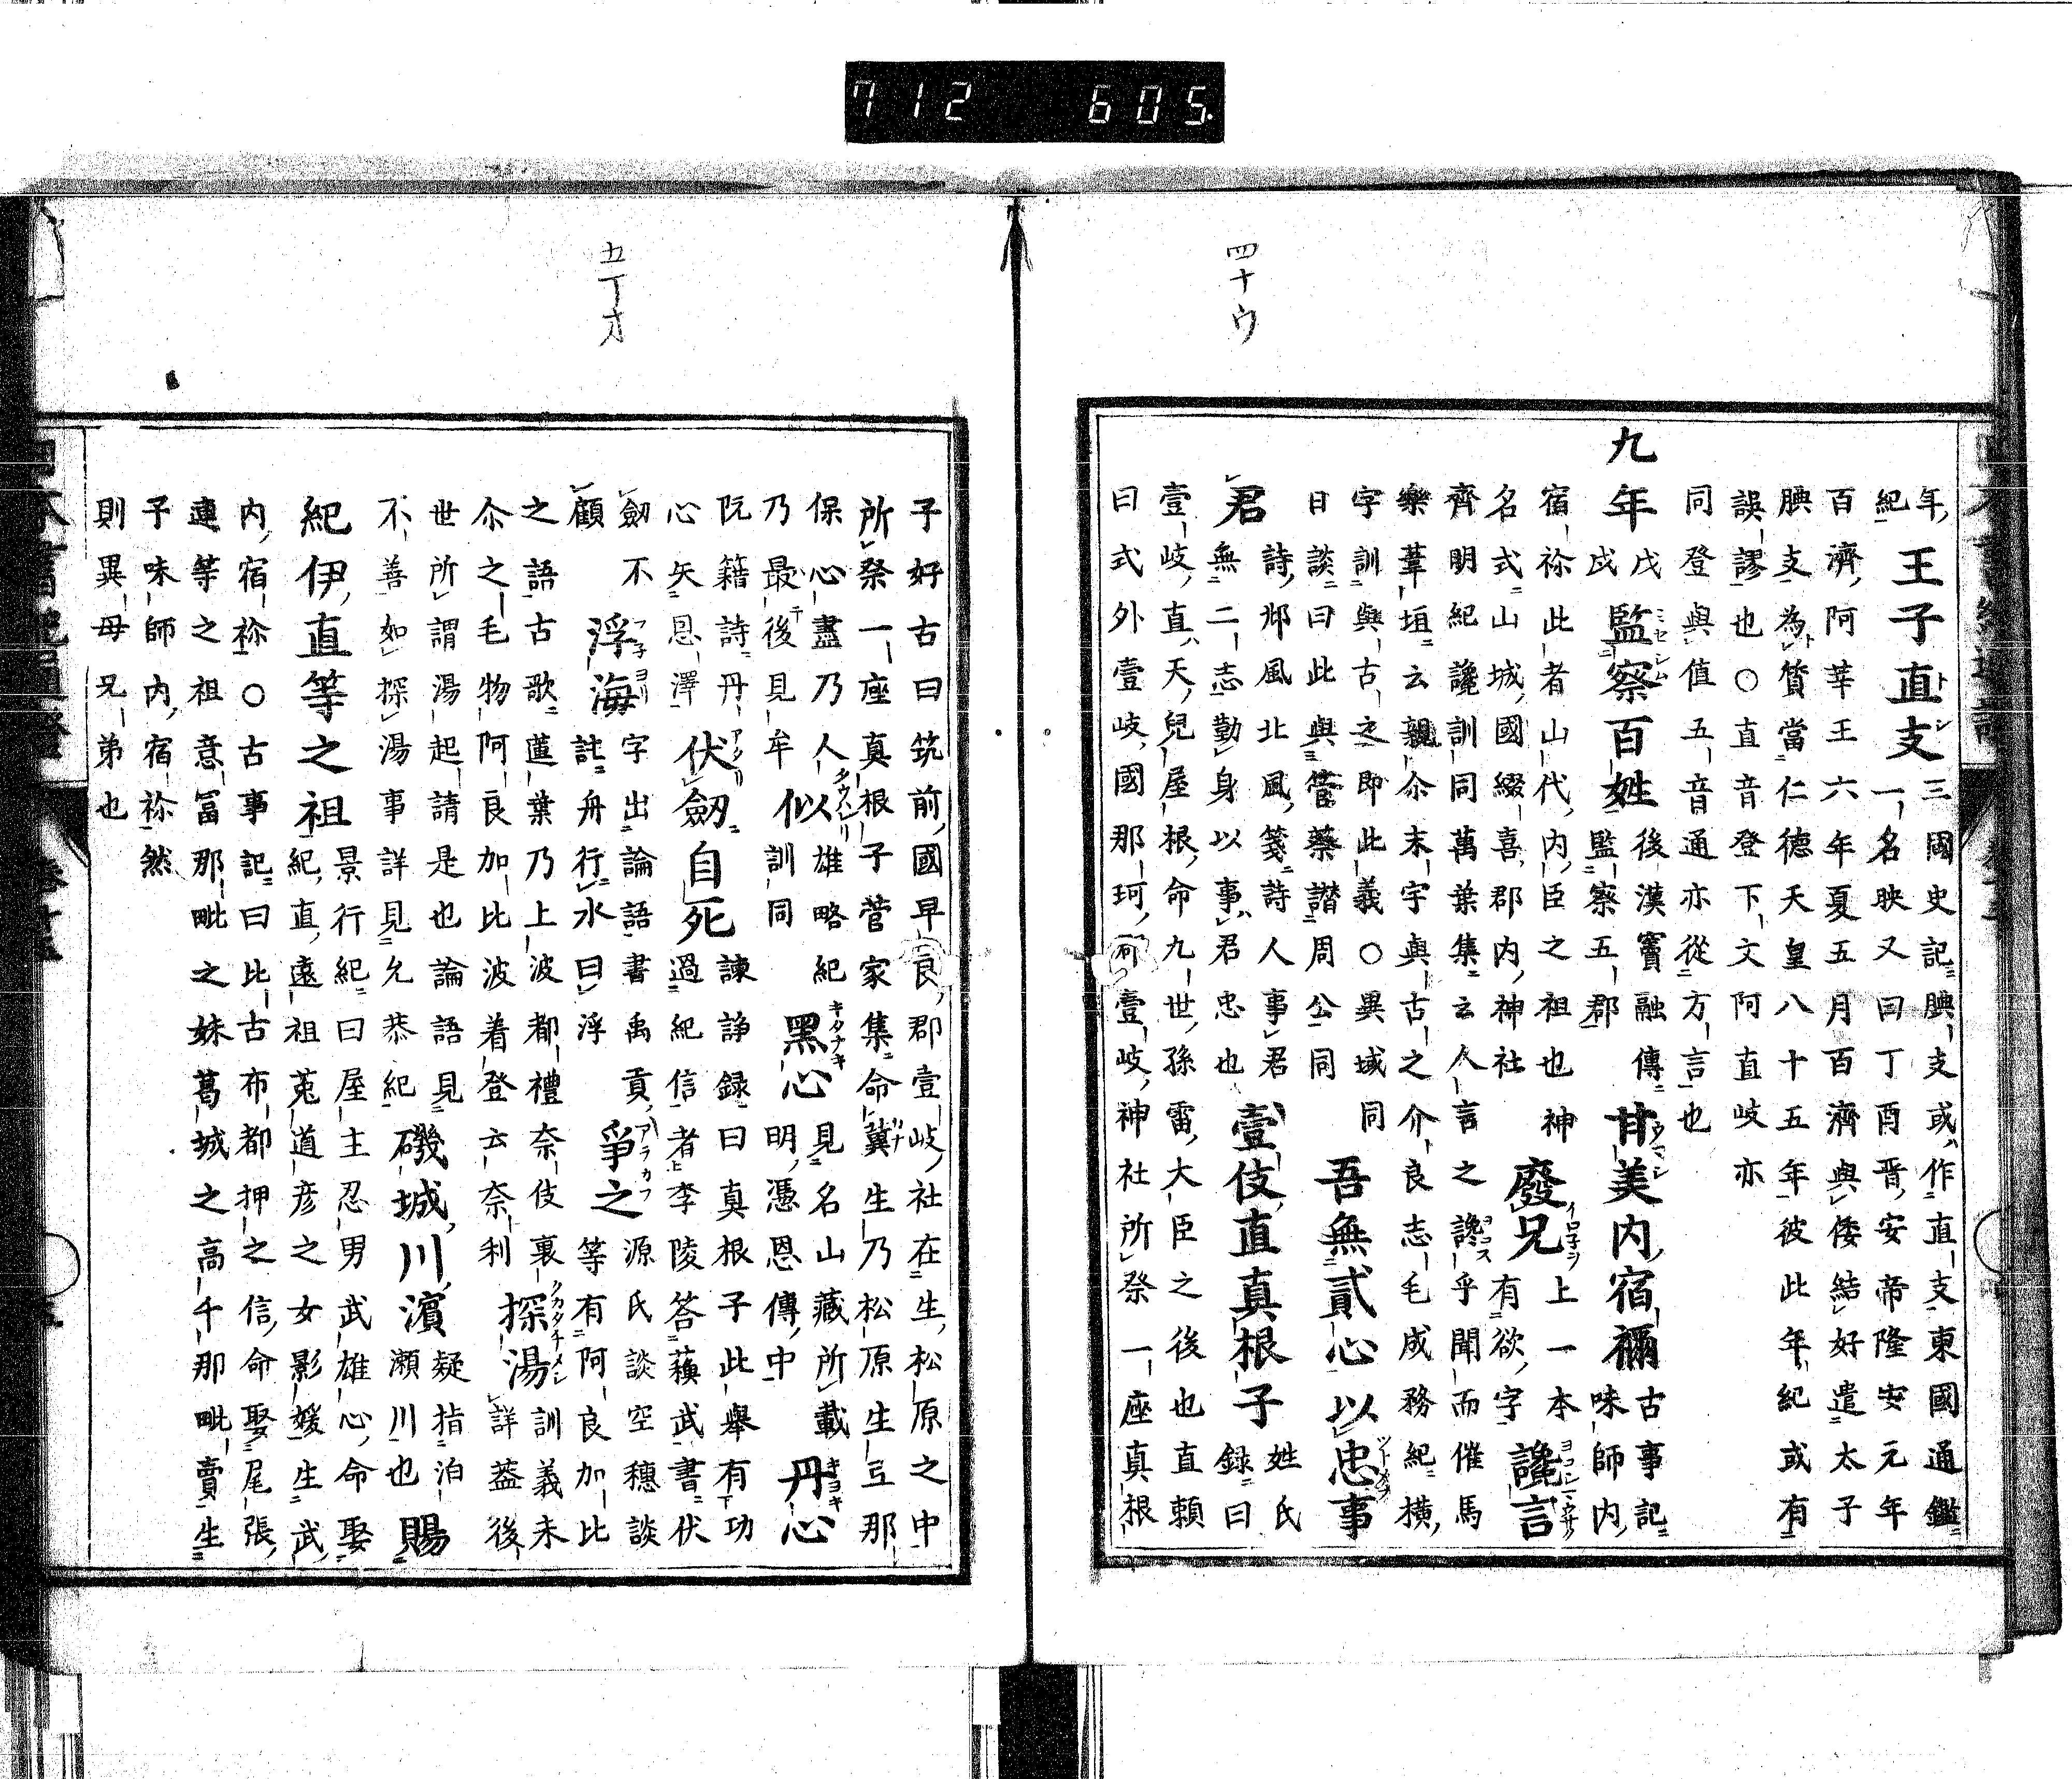 712 605.
四十ウ
年
紀
王子直支
三國史記腆支或作直支東國通鑑
一名映又曰丁酉晋安帝隆安元年
百濟阿莘王六年夏五月百濟與倭結好遣太子
腆支為質當仁德天皇八十五年彼此年紀或有
誤謬也○直音登下文阿直岐亦
同登與值五音通亦從方言也
九年
戊戌
監察百姓
後漢竇融傳
監察五郡
甘美内宿禰
古事記
味師内
宿祢此者山代内臣之祖也神
名式山城國綴喜郡内神社
廢兄
上一本
有欲字
讒言
齊明紀讒訓同萬葉集云人言之讒乎聞而催馬
樂葦垣云親尒末字與古之介良志毛成務紀横
字訓與古之即此義○異域同
日談曰此與菅蔡譖周公同
吾無貳心以忠事
君
詩邶風北風箋詩人事君
無二志勤身以事君忠也
壹伎直真根子
姓氏
録曰
壹岐直天兒屋根命九世孫雷大臣之後也直賴
曰式外壹岐國那珂郡壹岐神社所祭一座真根
五丁オ
子好古曰筑前國早良郡壹岐社在生松原之中
所祭一座真根子菅家集命冀生乃松原生豆那
保心盡乃人
似
雄略紀
訓同
黑心
見名山藏所載
明憑恩傳中
丹心
乃最後見牟
阮籍詩丹
心矢恩澤
伏劒自死
諫諍録曰真根子此舉有功
過紀信者李陵答蘓武書伏
劒不
顧
浮海
字出論語書禹貢
註舟行水曰浮
爭之
源氏談空穗談
等有阿良加比
之語古歌蓮葉乃上波都禮奈伎裏
尒之毛物阿良加比波着登云奈利
探湯
訓義未
詳葢後
世所謂湯起請是也論語見
不善如探湯事詳見允恭紀
磯城川濱
疑指泊
瀨川也
賜
紀伊直等之祖
景行紀曰屋主忍男武雄心命娶
紀直遠祖菟道彦之女影媛生武
内宿祢○古事記曰比古布都押之信命娶尾張
連等之祖意冨那毗之妹葛城之高千那毗賣生
子味師内宿祢然
則異母兄弟也